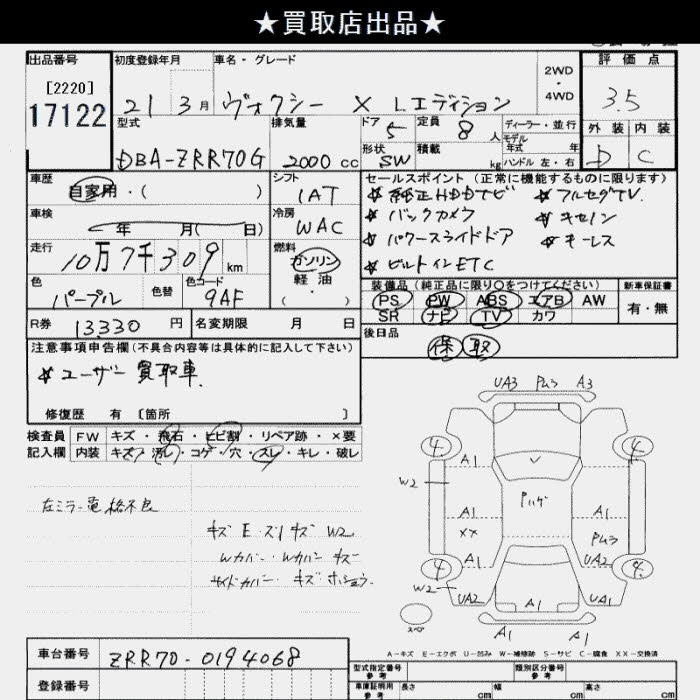 ★買取店出品★
出品番号 初度登録年月 車名・グレード 2WD・4WD 評価点
[2220]
17122
21 3月 ヴォクシー X Lエディション 3.5
型式 排気量 ドア 5 定員 8人 ディーラー・並行 外装 内装
モデル年式 年
DBA-ZRR70G 2000cc 形状 SW 積載 kg ハンドル 左・右 D C
車歴 シフト セールスポイント(正常に機能するものに限ります)
自家用・( ) 1AT ☆純正HDDナビ ☆フルセグTV.
車検 冷房 ☆バックカメラ ☆キセノン
年 月( 日) WAC ☆パワースライドドア ☆キーレス
走行 燃料 ☆ビルトインETC
10万7千309km ガソリン
軽油
・
( )
色 色替 色コード 装備品(純正品に限り○をつけてください) 新車保証書
パープル 9AF PS PW ABS エアB AW 有・無
SR ナビ TV カワ
R券 13330円 名変期限 月 日 後日品
保 取
注意事項申告欄(不具合内容等は具体的に記入して下さい)
☆ユーザー買取車.
修復歴 有 [箇所 ]
検査員 FW キズ・飛石・ヒビ割・リペア跡・×要
記入欄 内装 キズ・汚レ・コゲ・穴・スレ・キレ・破レ
左ミラー電格不良
キズ E・ズレキズ W2
Wカバー・Wカバー キズ
サイドカバー・キズ
UA3 A3
4 4
A1 A1
W2
A1 A1
XX
A1 UA2
4
W2 UA2 A1 UA1
スペ
A1 A1
A-キズ E-エクボ U-凹み W-補修跡 S-サビ C-腐食 XX-交換済
車台番号 ZRR70-0194068
登録番号
型式指定番号 参考 類別区分番号 参考
車庫証明用 参考 長さ cm 幅 cm 高さ cm